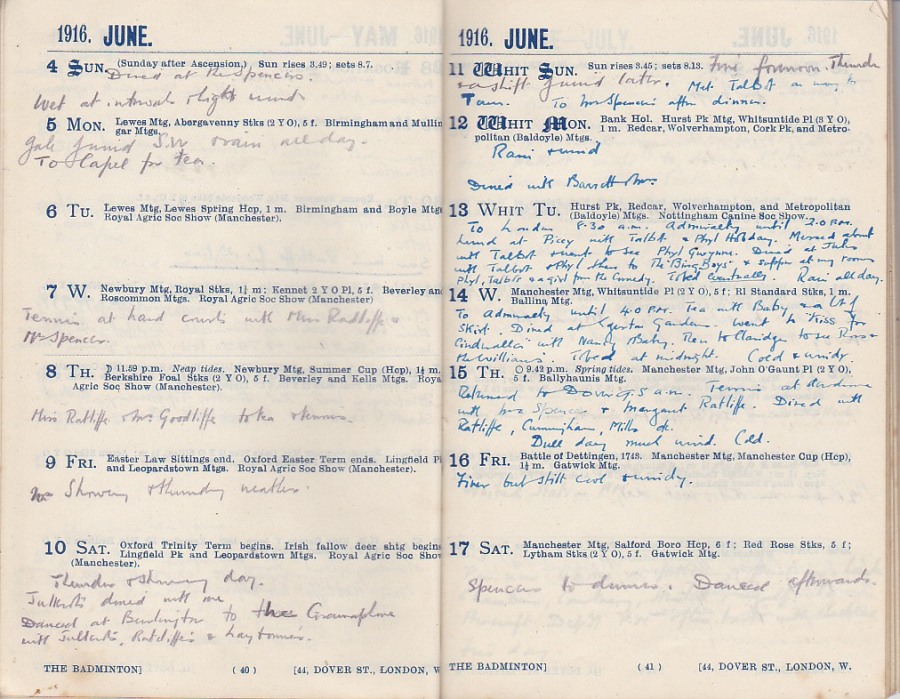 1916. JUNE.
4 SUN. (Sunday after Ascension.) Sun rises 3.49; sets 8.7.
Dined at the Spencers.
Wet at intervals slight wind
5 MON. Lewes Mtg, Abergavenny Stks (2 Y O), 5 f. Birmingham and Mullin
gar Mtgs.
Gale wind S.W rain all day.
To Capel for tea.
6 TU. Lewes Mtg, Lewes Spring Hcp, 1 m. Birmingham and Boyle Mtg
Royal Agric Soc Show (Manchester).
7 W. Newbury Mtg, Royal Stks, 1¼ m; Kennet 2 Y O Pl, 5 f. Beverley an
Roscommon Mtgs. Royal Agric Soc Show (Manchester)
Tennis at hard courts with Miss Radcliffe &
Mrs Spencer.
8 TH. ☽ 11.59 p.m. Neap tides. Newbury Mtg, Summer Cup (Hcp), 1½ m.
Berkshire Foal Stks (2 Y O), 5 f. Beverley and Kells Mtgs. Roya
Agric Soc Show (Manchester).
Miss Ratliffe & Mrs Goodliffe to tea & tennis.
9 FRI. Easter Law Sittings end. Oxford Easter Term ends. Lingfield P
and Leopardstown Mtgs. Royal Agric Soc Show (Manchester).
Showery & thundery weather.
10 SAT. Oxford Trinity Term begins. Irish fallow deer shtg begins
Lingfield Pk and Leopardstown Mtgs. Royal Agric Soc Show
(Manchester).
Thunder & showery day.
dined with me
Danced at Burlington to the Gramophone
with Ratcliffes &
THE BADMINTON] ( 40 ) [44, DOVER ST., LONDON, W
1916. JUNE.
11 WHIT SUN. Sun rises 3.45; sets 8.13. Fine forenoon. Thunder
& a shift of wind later. Met Talbot on way to
Town. To Mrs Spencer after dinner.
12 WHIT MON. Bank Hol. Hurst Pk Mtg, Whitsuntide Pl (3 Y O),
1 m. Redcar, Wolverhampton, Cork Pk, and Metro-
politan (Baldoyle) Mtgs.
Rain & wind
Dined with Barrett & Mrs.
13 WHIT TU. Hurst Pk, Redcar, Wolverhampton, and Metropolitan
(Baldoyle) Mtgs. Nottingham Canine Soc Show.
To London 8.30 a.m. Admiralty until 2.0 P.M.
Lunch at Piccy with Talbot & Phyl Holiday. Messed about
with Talbot & went to see Phyl Gwynne. Dined at Jules
with Talbot & Phyl then to The "Bing Boys" & supper at my rooms
Phyl, Talbot & a girl from the Comedy. To bed eventually. Rain all day.
14 W. Manchester Mtg, Whitsuntide Pl (2 Y O), 5 f; Rl Standard Stks, 1 m.
Ballina Mtg.
To Admiralty until 4.0 P.M. Tea with Baby & a lot of
Skirt. Dined at Egerton Gardens. Went to "Kiss for
Cinderella" with Nancy & Baby. Then to Claridges to see Rose
McWilliams. To bed at midnight. Cold & windy.
15 TH. ○ 9.42 p.m. Spring tides. Manchester Mtg, John O'Gaunt Pl (2 Y O),
5 f. Ballyhaunis Mtg.
Returned to Dover 9.5 a.m. Tennis at
with Mrs Spencer & Margaret Ratliffe. Dined with
Ratliffe, Cunningham, Mills &c.
Dull day much wind. Cold.
16 FRI. Battle of Dettingen, 1743. Manchester Mtg, Manchester Cup (Hcp),
1½ m. Gatwick Mtg.
Finer but still cool & windy.
17 SAT. Manchester Mtg, Salford Boro Hcp, 6 f; Red Rose Stks, 5 f;
Lytham Stks (2 Y O), 5 f. Gatwick Mtg.
Spencers to dinner. Danced afterwards.
THE BADMINTON] ( 41 ) [44, DOVER ST., LONDON, W.